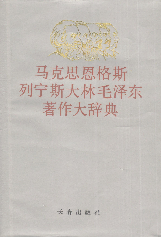 马克思恩格斯
列宁斯大林毛泽东
著作大辞典